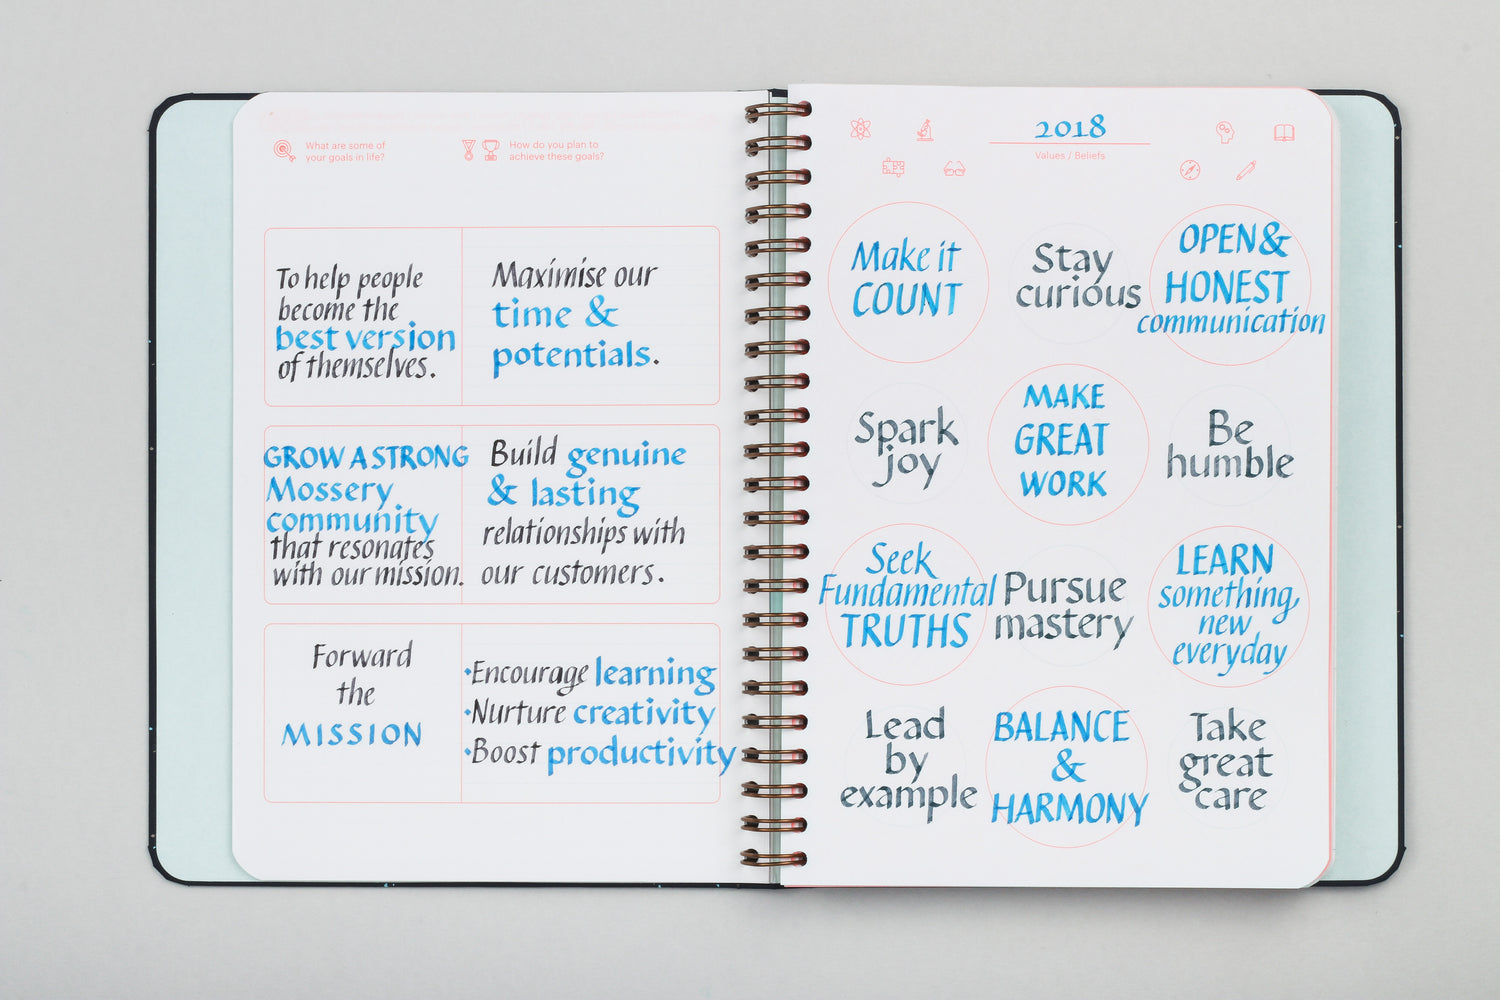 What are some of
your goals in life?
How do you plan to
achieve these goals?
To help people
become the
best version
of themselves.
Maximise our
time &
potentials.
GROW A STRONG
Mossery
community
that resonates
with our mission.
Build genuine
& lasting
relationships with
our customers.
Forward
the
MISSION
•Encourage learning
•Nurture creativity
•Boost productivity
2018
Values / Beliefs
Make it
COUNT
Stay
curious
OPEN &
HONEST
communication
Spark
joy
MAKE
GREAT
WORK
Be
humble
Seek
Fundamental
TRUTHS
Pursue
mastery
LEARN
something
new
everyday
Lead
by
example
BALANCE
&
HARMONY
Take
great
care